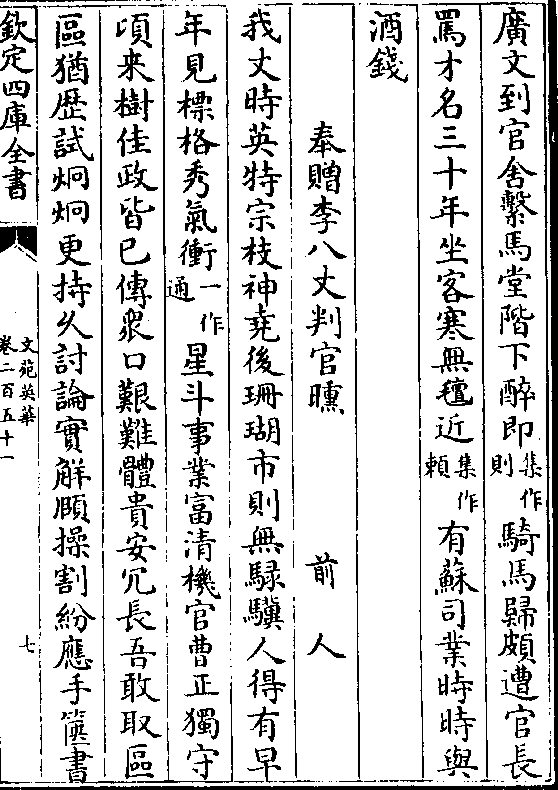 廣文到官舍繫馬堂階下醉即集作則騎馬歸頗遭官長
罵才名三十年坐客寒無氊近集作賴有蘇司業時時與
酒錢
奉贈李八丈判官曛 前人
我丈時英特宗枝神堯後珊瑚市則無騄驥人得有早
年見標格秀氣衝一作通星斗事業富清機官曹正獨守
頃来樹佳政皆已傳衆口艱難體貴安冗長吾敢取區
區猶歴試炯炯更持乆討論實解頥操割紛應手篋書
欽定四庫全書
文苑英華
卷二百五十一
七